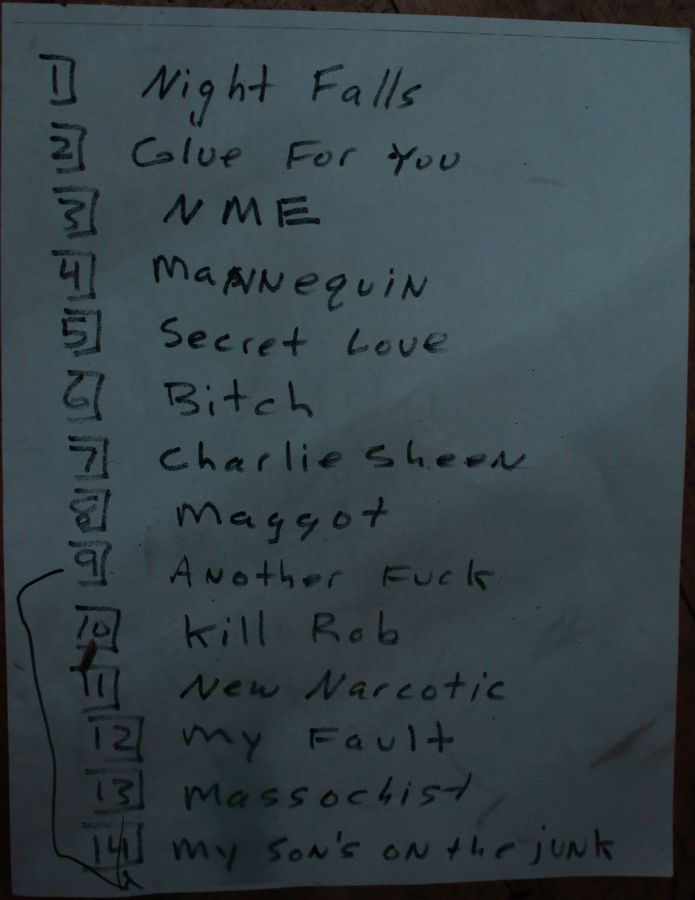 1 Night Falls
2 Glue For You
3 NME
4 Mannequin
5 Secret Love
6 Bitch
7 Charlie Sheen
8 Maggot
9 Another Fuck
10 Kill Rob
11 New Narcotic
12 My Fault
13 Massochist
14 My Son's on the junk